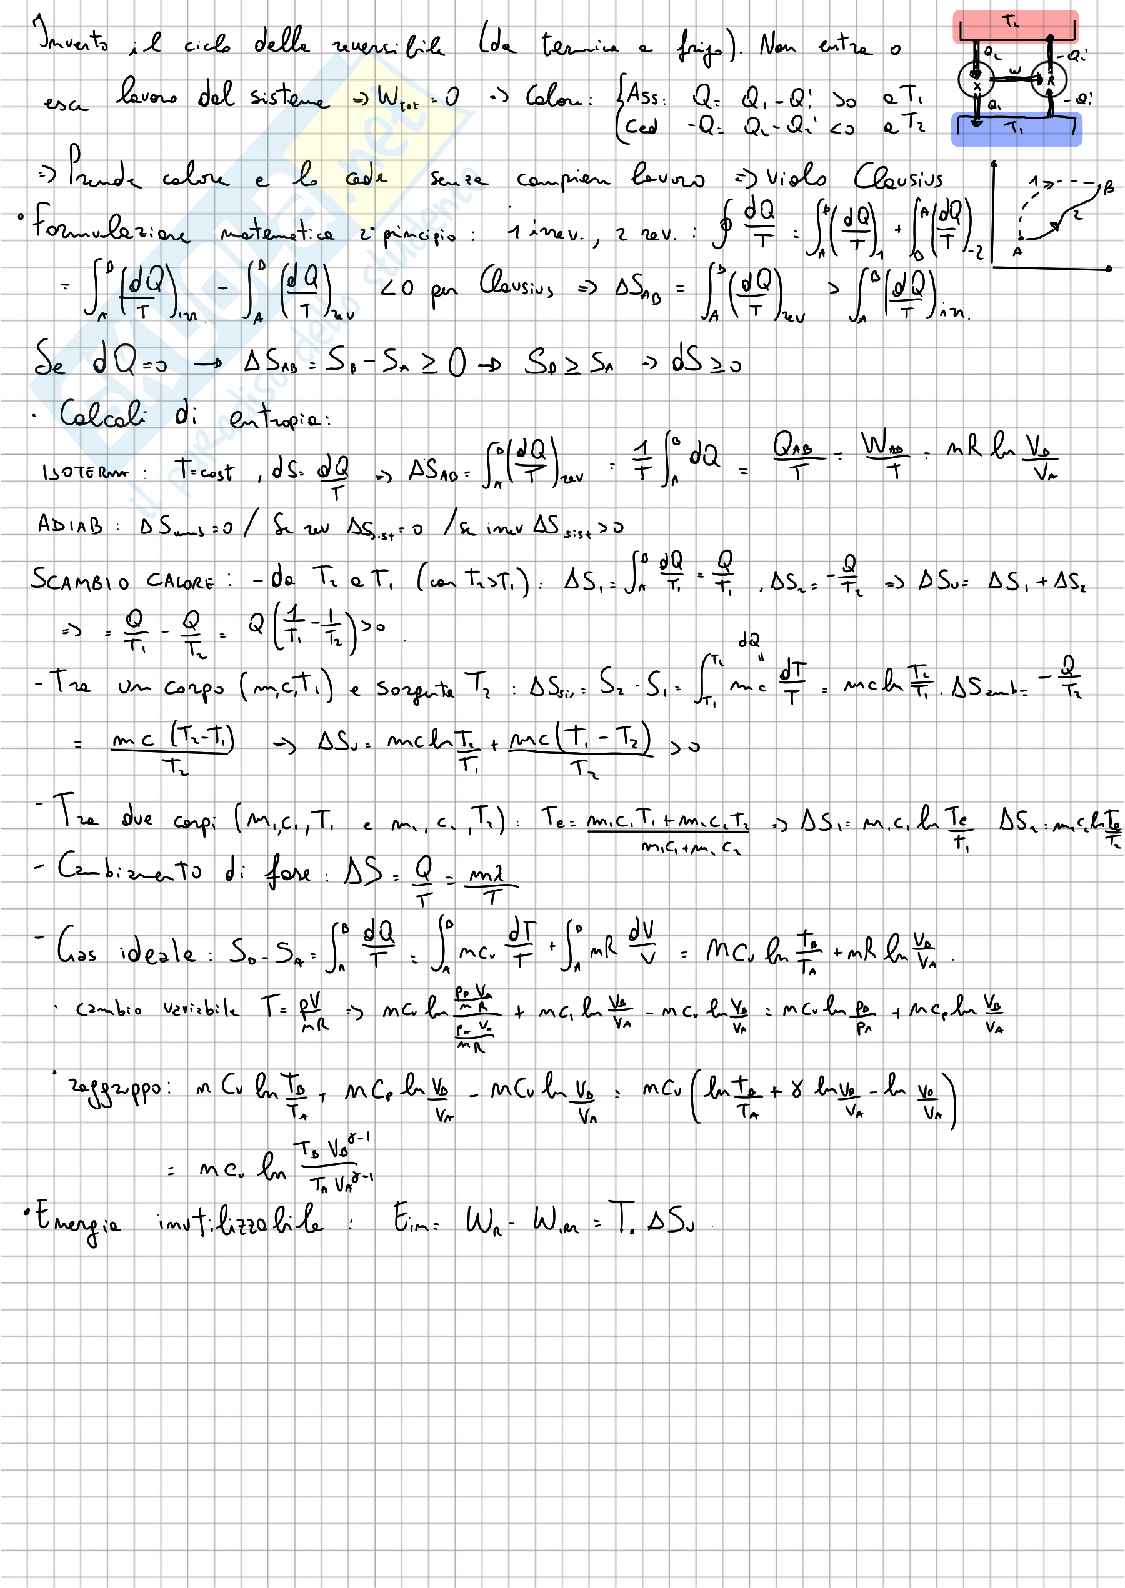 Inverto il ciclo della reversibile (da termica a frigo). Non entra o
esce lavoro dal sistema => W_tot = 0 => Calore: { Ass: Q = Q₁ - Q₁' > 0 a T₁
{ Ced -Q = Q₂ - Q₂' < 0 a T₂
=> Prende calore e lo cede senza compiere lavoro => Viola Clausius
T₂
Q₂ -Q₂'
X W R
Q₁ -Q₁'
T₁
1 B
2
A
• Formulazione matematica 2° principio: 1 irrev., 2 rev.: ∮ dQ/T = ∫_A^B (dQ/T)_1 + ∫_B^A (dQ/T)_-2
= ∫_A^B (dQ/T)_irr. - ∫_A^B (dQ/T)_rev < 0 per Clausius => ΔS_AB = ∫_A^B (dQ/T)_rev > ∫_A^B (dQ/T)_irr.
Se dQ = 0 → ΔS_AB = S_B - S_A ≥ 0 → S_B ≥ S_A → dS ≥ 0
· Calcoli di entropia:
ISOTERM: T = cost, dS = dQ/T => ΔS_AB = ∫_A^B (dQ/T)_rev = 1/T ∫_A^B dQ = Q_AB/T = W_AB/T = nR ln V_B/V_A
ADIAB: ΔS_amb = 0 / Se rev ΔS_sist = 0 / se irrev ΔS_sist > 0
SCAMBIO CALORE: - da T₂ a T₁ (con T₂ > T₁): ΔS₁ = ∫_A^B dQ/T₁ = Q/T₁, ΔS₂ = -Q/T₂ => ΔS_U = ΔS₁ + ΔS₂
=> = Q/T₁ - Q/T₂ = Q(1/T₁ - 1/T₂) > 0.
dQ
- Tra un corpo (m, c, T₁) e sorgente T₂: ΔS_sis = S₂ - S₁ = ∫_T₁^T₂ mc dT/T = mc ln T₂/T₁. ΔS_amb = -Q/T₂
= mc(T₂-T₁)/T₂ → ΔS_U = mc ln T₂/T₁ + mc(T₁-T₂)/T₂ > 0
- Tra due corpi (m₁, c₁, T₁ e m₂, c₂, T₂): Te = m₁c₁T₁ + m₂c₂T₂/m₁c₁ + m₂c₂ => ΔS₁ = m₁c₁ ln Te/T₁ ΔS₂ = m₂c₂ ln Te/T₂
- Cambiamento di fase: ΔS = Q/T = mλ/T
- Gas ideale: S_B - S_A = ∫_A^B dQ/T = ∫_A^B nc_v dT/T + ∫_A^B nR dV/V = nc_v ln T_B/T_A + nR ln V_B/V_A.
· cambio variabile T = pV/nR => nc_v ln (p_B V_B/nR)/(p_A V_A/nR) + nc_p ln V_B/V_A - nc_v ln V_B/V_A = nc_v ln p_B/p_A + nc_p ln V_B/V_A
· raggruppo: nc_v ln T_B/T_A + nc_p ln V_B/V_A - nc_v ln V_B/V_A = nc_v (ln T_B/T_A + γ ln V_B/V_A - ln V_B/V_A)
= nc_v ln T_B V_B^γ-1/T_A V_A^γ-1
• Energia inutilizzabile: E_in = W_R - W_irr = T₀ ΔS_U.